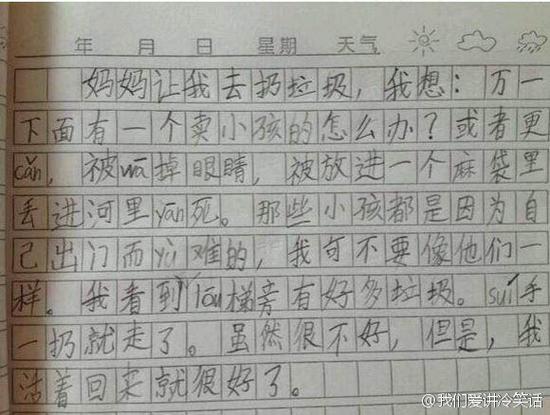 年 月 日 星期 天气
妈妈让我去扔垃圾，我想：万一
下面有一个卖小孩的怎么办？或者更
cǎn，被wā掉眼睛，被放进一个麻袋里
丢进河里yān死。那些小孩都是因为自
己出门而yù难的，我可不要像他们一
样。我看到lóu梯旁有好多垃圾。suí手
一扔就走了。虽然很不好，但是，我
活着回来就很好了。
@我们爱讲冷笑话